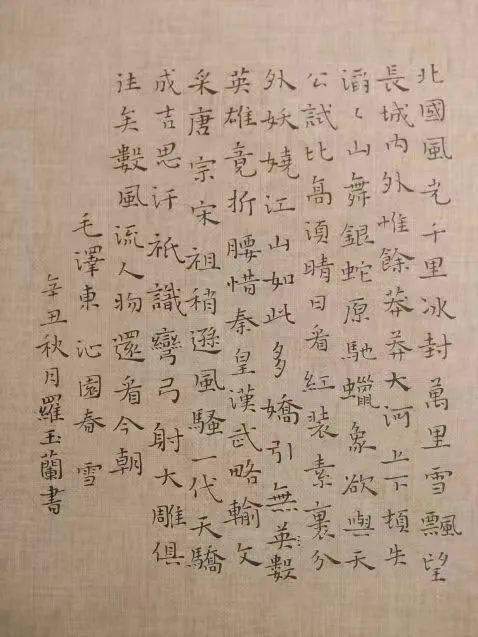 北國風光千里冰封萬里雪飄望
長城內外惟餘莽莽大河上下頓失
滔〻山舞銀蛇原馳蠟象欲與天
公試比高須晴日看紅装素裹分
外妖嬈江山如此多嬌引無英數
英雄竟折腰惜秦皇漢武略輸文
采唐宗宋祖稍遜風騷一代天驕
成吉思汗祇識彎弓射大雕俱
往矣數風流人物還看今朝
毛澤東 沁園春 雪
辛丑秋月羅玉蘭書